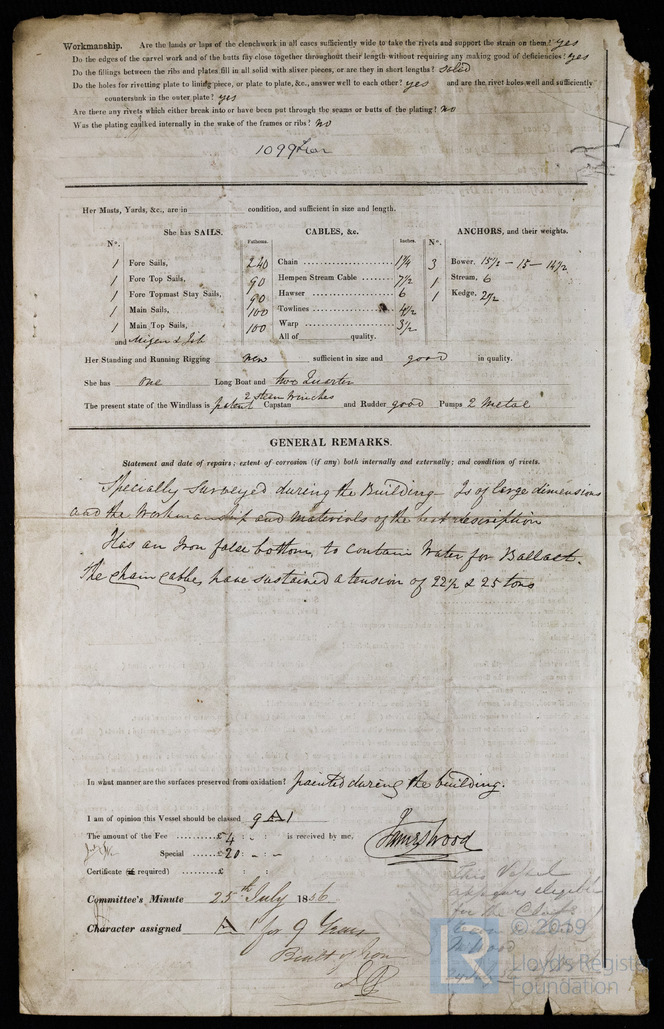 Workmanship. Are the lands or laps of the clenchwork in all cases sufficiently wide to take the rivets and support the strain on them? yes
Do the edges of the carvel work and of the butts fay close together throughout their length without requiring any making good of deficiencies? yes
Do the fillings between the ribs and plates fill in all solid with sliver pieces, or are they in short lengths? solid
Do the holes for rivetting plate to lining piece, or plate to plate, &c., answer well to each other? yes and are the rivet holes well and sufficiently
countersunk in the outer plate? yes
Are there any rivets which either break into or have been put through the seams or butts of the plating? no
Was the plating caulked internally in the wake of the frames or ribs? no
1099
Her Masts, Yards, &c., are in condition, and sufficient in size and length.
She has SAILS. CABLES, &c. ANCHORS, and their weights.
No. Fathoms. Inches. No.
1 Fore Sails, 240 Chain 1¼ 3 Bower, 15½ - 15 - 14½
1 Fore Top Sails, 90 Hempen Stream Cable 7½ 1 Stream, 6
1 Fore Topmast Stay Sails, 90 Hawser 6 1 Kedge, 2½
1 Main Sails, 100 Towlines 4½
1 Main Top Sails, 100 Warp 3½
and Mizen & Jib All of quality.
Her Standing and Running Rigging new sufficient in size and good in quality.
She has one Long Boat and two Quarter
2 steam winches
The present state of the Windlass is patent Capstan and Rudder good Pumps 2 Metal
GENERAL REMARKS.
Statement and date of repairs; extent of corrosion (if any) both internally and externally; and condition of rivets.
Specially Surveyed during the Building - Is of large dimensions
and the Workmanship and materials of the best description
Has an Iron false bottom, to contain Water for Ballast.
The chain cables have sustained a tension of 22½ & 25 tons
In what manner are the surfaces preserved from oxidation? painted during the building.
I am of opinion this Vessel should be classed 9 A 1
The amount of the Fee £ 4 : - : is received by me,
James Wood
Special £ 20 : - : -
Certificate (if required) £ : :
Committee's Minute 25th July 1856
Character assigned A 1 for 9 Years
Built of Iron
This Vessel
appears eligible
for the Class
© 2019
Lloyd's Register
Foundation
LR